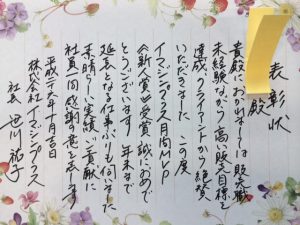 表彰状
殿
貴殿におかれましては販売職
未経験ながら高い販売目標を
達成、クライアントから絶賛
いただきました この度
イマジンプラス月間MVP
新人賞受賞 誠におめで
とうございます 年末まで
延長となる仕事ぶりも伺いました
素晴しい実績、貢献に
社員一同 感謝の意を表します
平成二十 年十月吉日
株式会社イマジンプラス
社長 笹川祐子